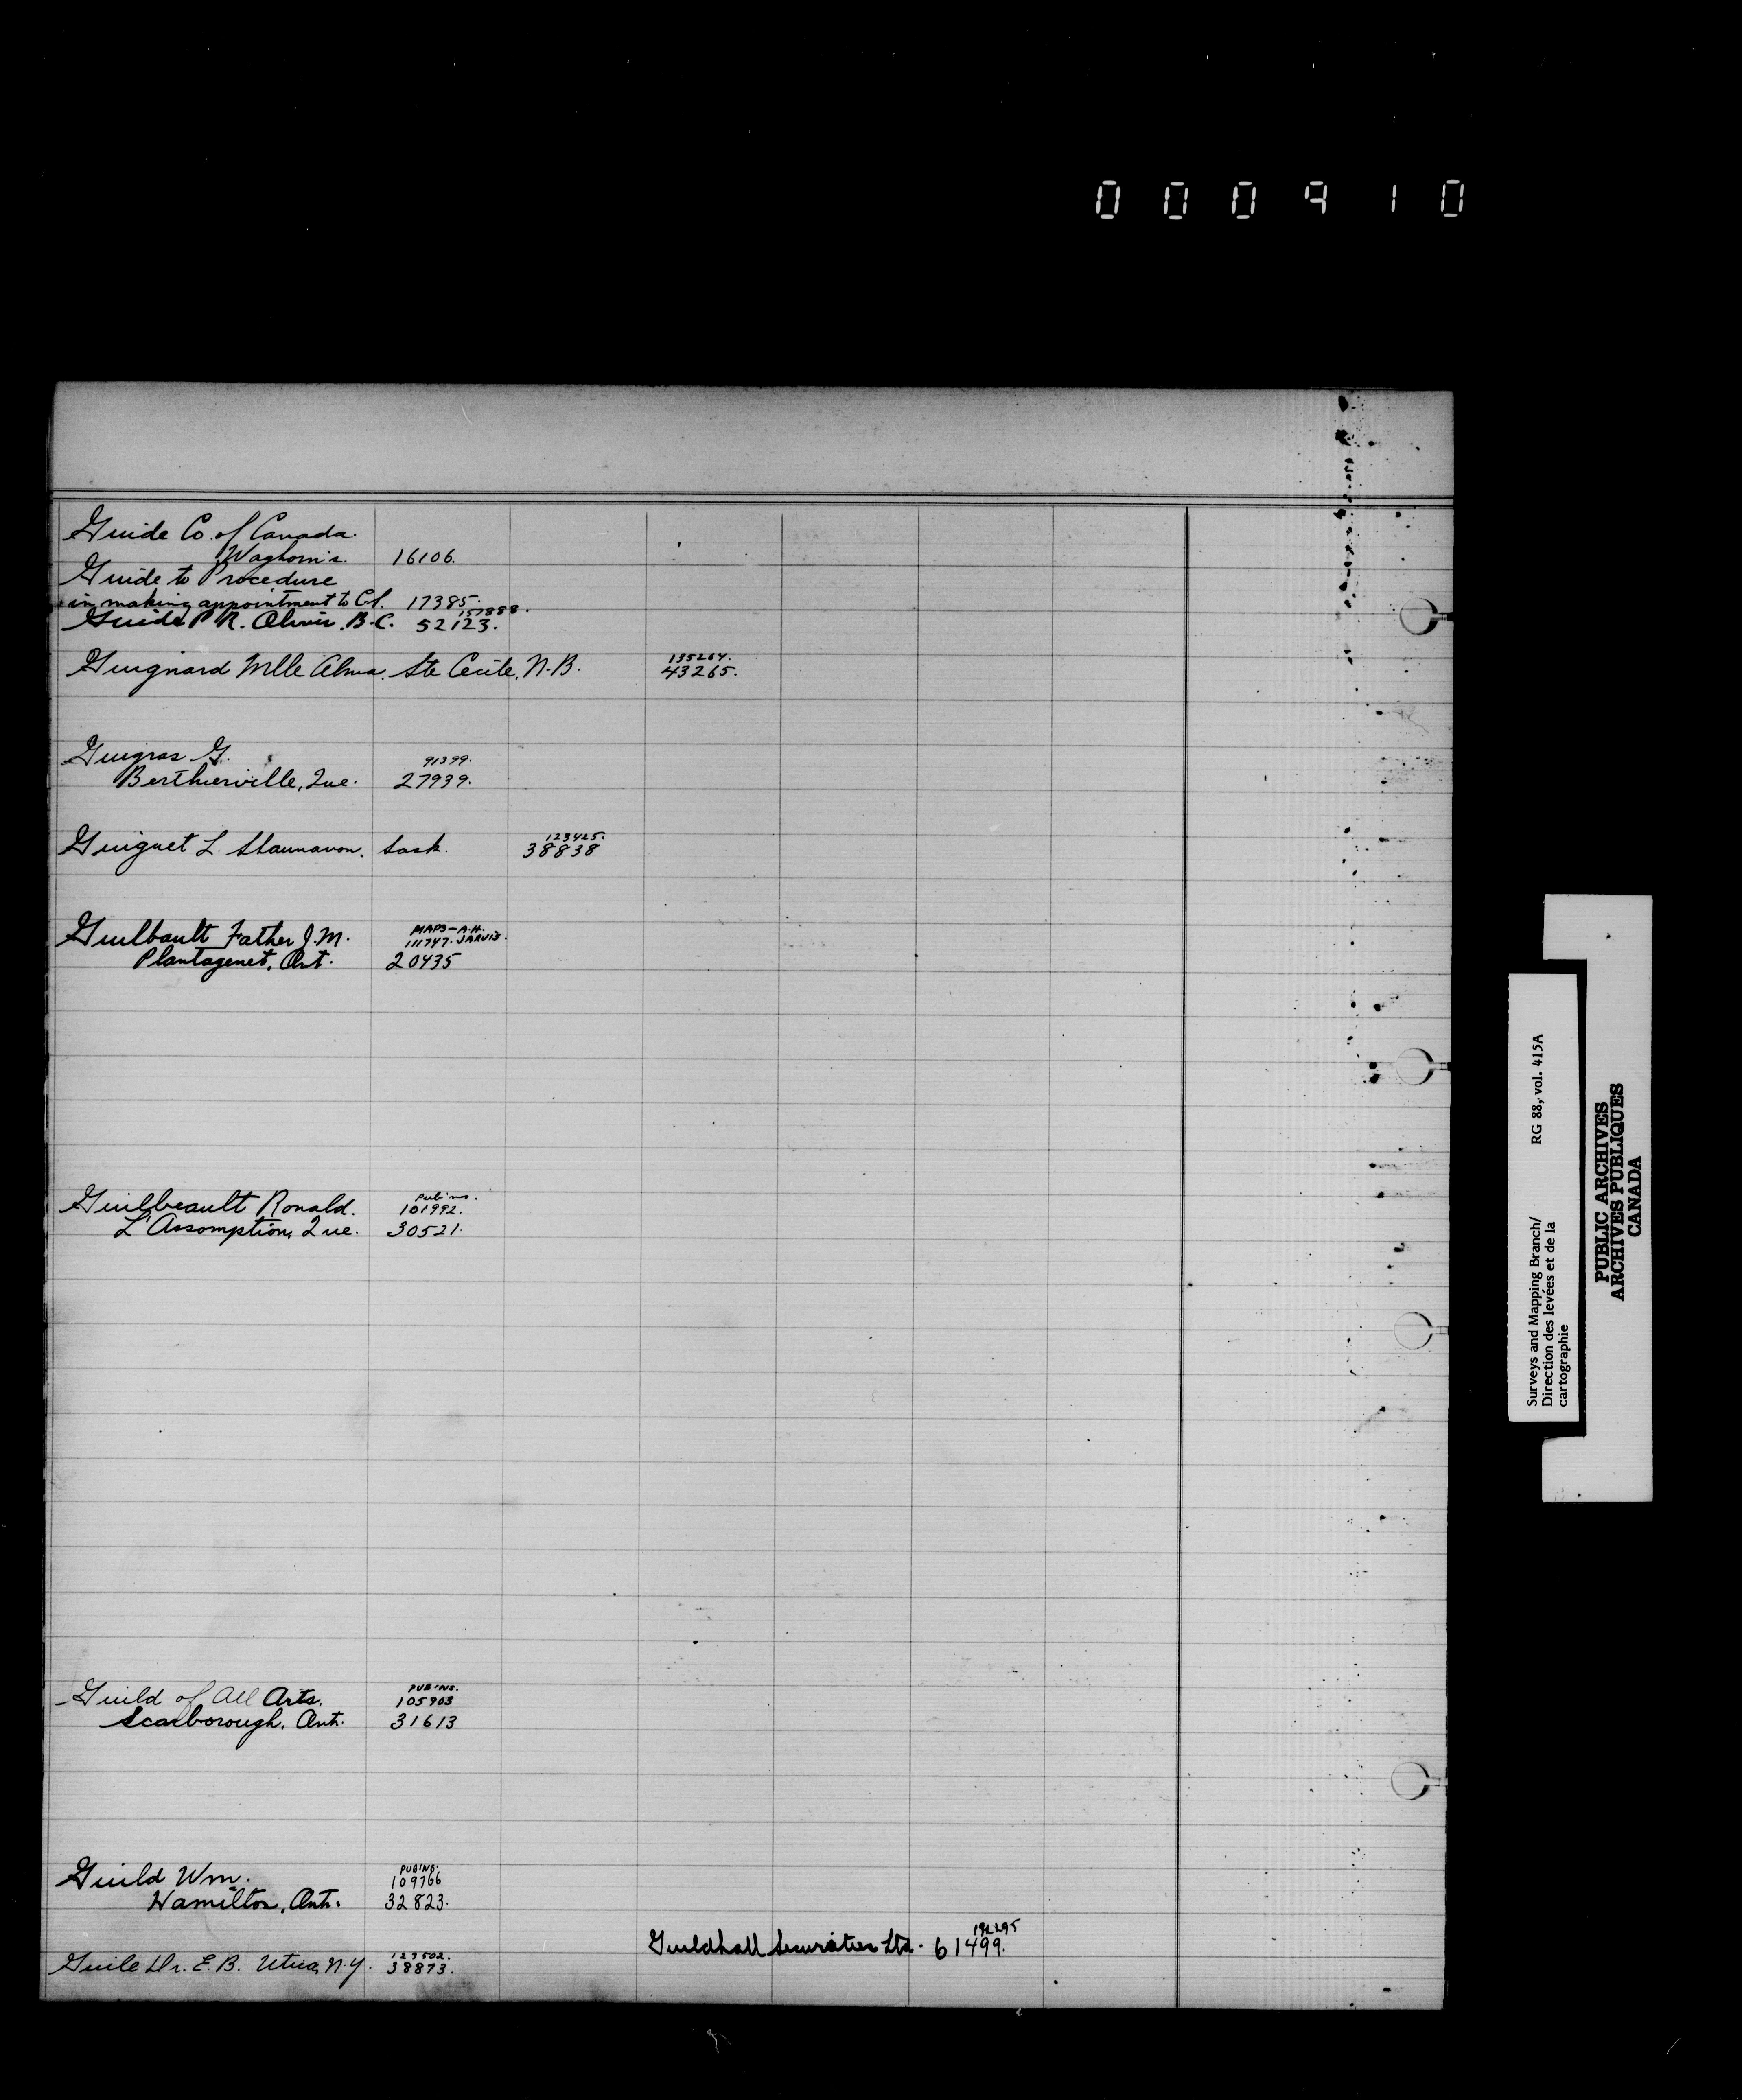 000910
Guide Co. of Canada.
Waghorn's. 16106.
Guide to Procedure
in making appointment to C.S. 17385.
157888.
Guide P.R. Oliver, B.C. 52123.
135264.
Guignard Mlle Alma, Ste Cecile, N.B. 43265.
Guigras G. 91399.
Berthierville, Que. 27939.
123425.
Guiguet L. Shaunavon, Sask. 38838
MAPS-A.H.
Guilbault Father J.M. 111747. JARVIS.
Plantagenet, Ont. 20435
Pub'ns.
Guilbeault Ronald. 101992.
L'Assomption, Que. 30521.
PUB'NS.
Guild of All Arts. 105903
Scarborough, Ont. 31613
PUB'NS.
Guild Wm. 109766
Hamilton, Ont. 32823.
192295
Guildhall Securities Ltd. 61499.
123502.
Guile Dr. E.B. Utica, N.Y. 38873.
Surveys and Mapping Branch/ RG 88, vol. 415A
Direction des levées et de la
cartographie
PUBLIC ARCHIVES
ARCHIVES PUBLIQUES
CANADA